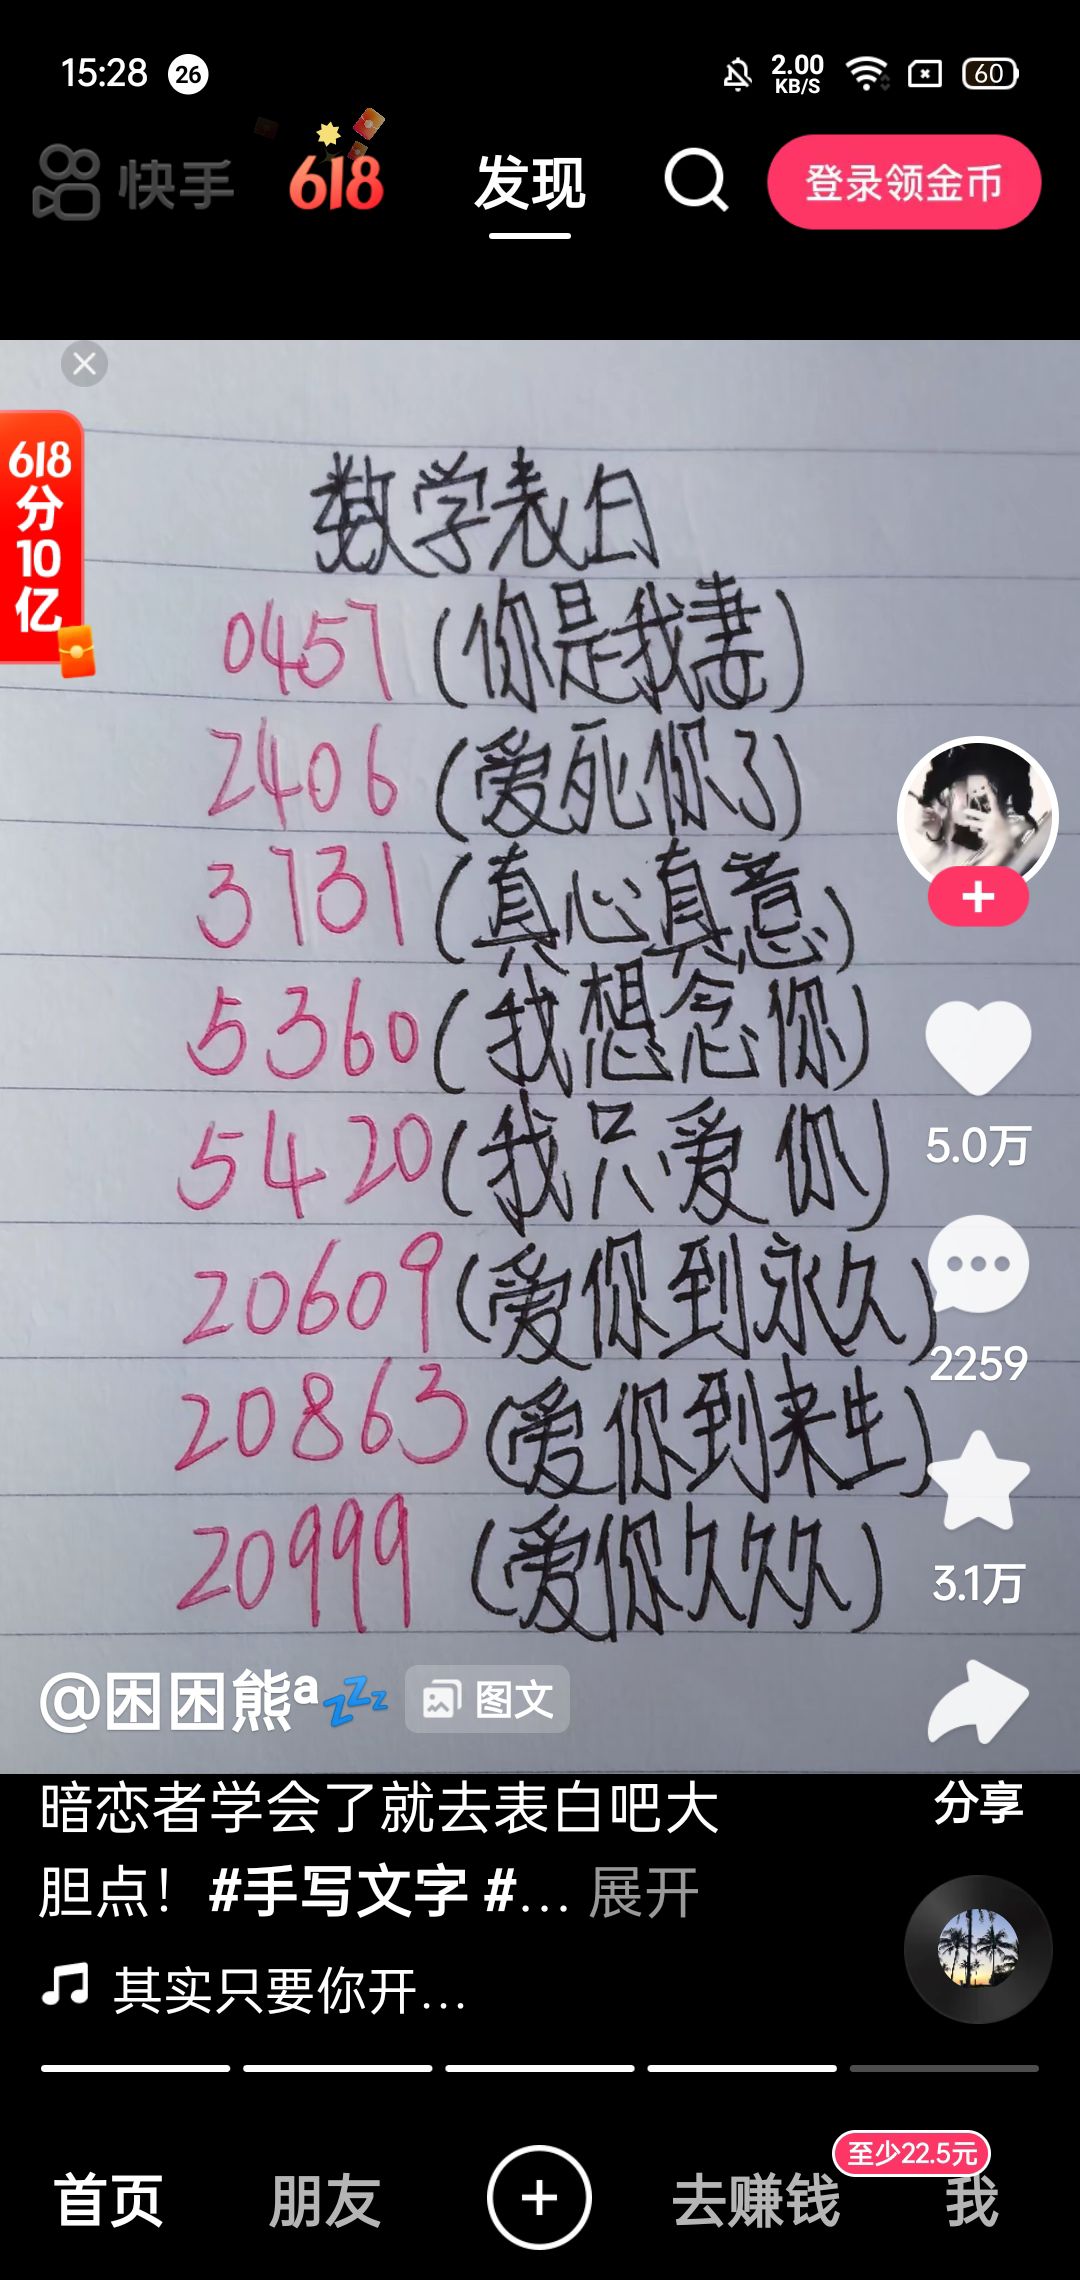 15:28 26 2.00 KB/S 60
快手 618 发现 登录领金币
618
分
10
亿
数学表白
0457 (你是我妻)
2406 (爱死你了)
3731 (真心真意)
5360 (我想念你)
5420 (我只爱你)
20609 (爱你到永久)
20863 (爱你到来生)
20999 (爱你久久久)
5.0万
2259
3.1万
分享
@困困熊ᵃ💤 图文
暗恋者学会了就去表白吧大
胆点！#手写文字 #... 展开
其实只要你开...
至少22.5元
首页 朋友 去赚钱 我